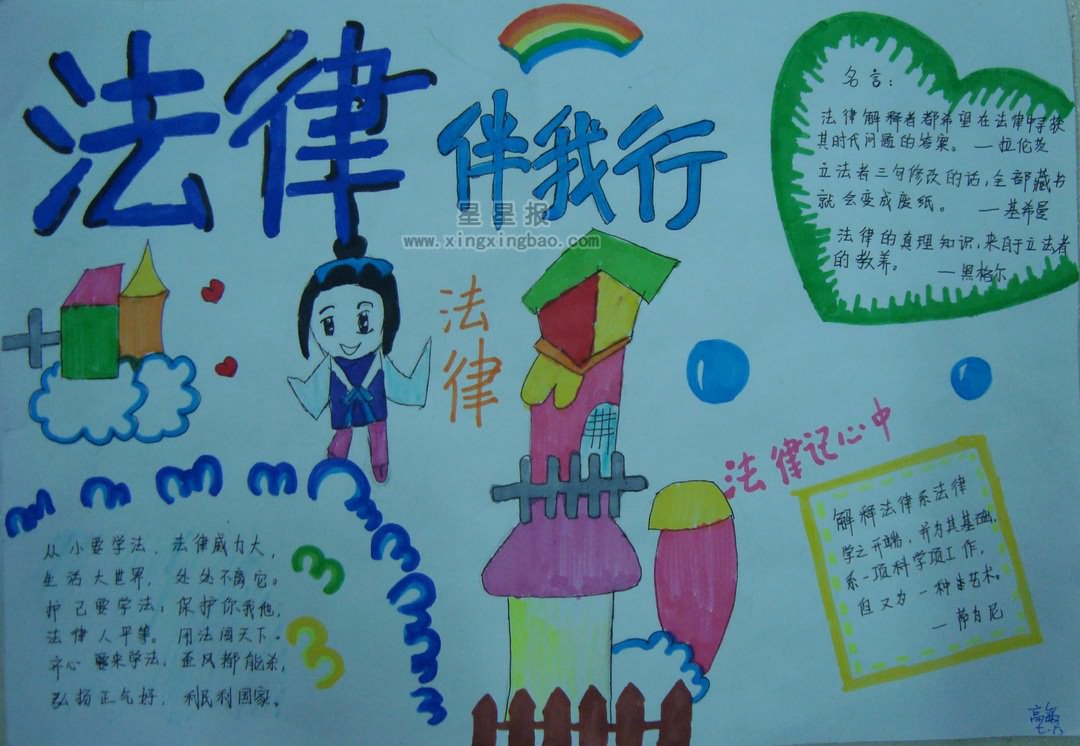 法律
伴我行
星星报
www.xingxingbao.com
名言：
法律解释者都希望在法律中寻获
其时代问题的答案。 —拉伦茨
立法者三句修改的话，全部藏书
就会变成废纸。 —基希曼
法律的真理知识，来自于立法者
的教养。 —黑格尔
法律
法律记心中
解释法律系法律
学之开端，并为其基础，
系一项科学项工作，
但又为一种艺术。
—萨内尼
从小要学法，法律威力大，
生活大世界，处处不离它。
护己要学法，保护你我他，
法律人平等。用法闯天下。
齐心要来学法，歪风都能杀，
弘扬正气好，利民利国家。